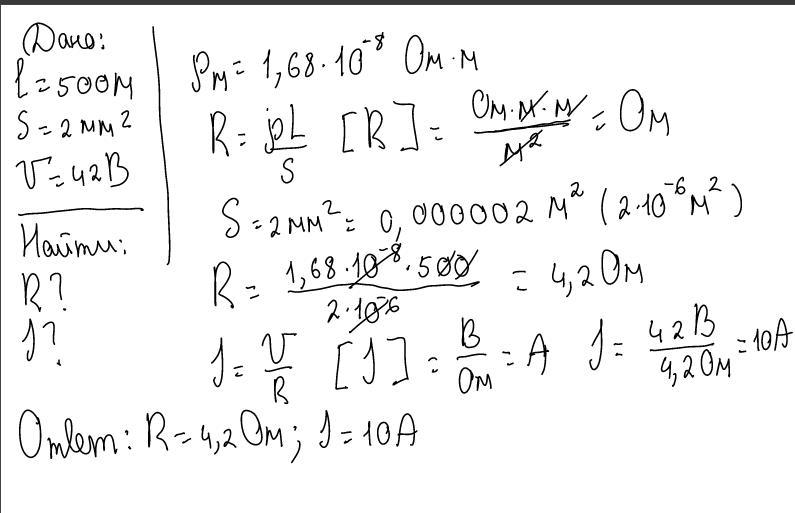 Дано:
l=500м
S=2мм²
U=42В
Найти:
R?
J?
ρм=1,68·10⁻⁸ Ом·м
R=ρL/S [R]=Ом·м·м/м²=Ом
S=2мм²=0,000002 м² (2·10⁻⁶м²)
R=1,68·10⁻⁸·500/2·10⁻⁶=4,2Ом
J=U/R [J]=В/Ом=А J=42В/4,2Ом=10А
Ответ: R=4,2Ом; J=10А